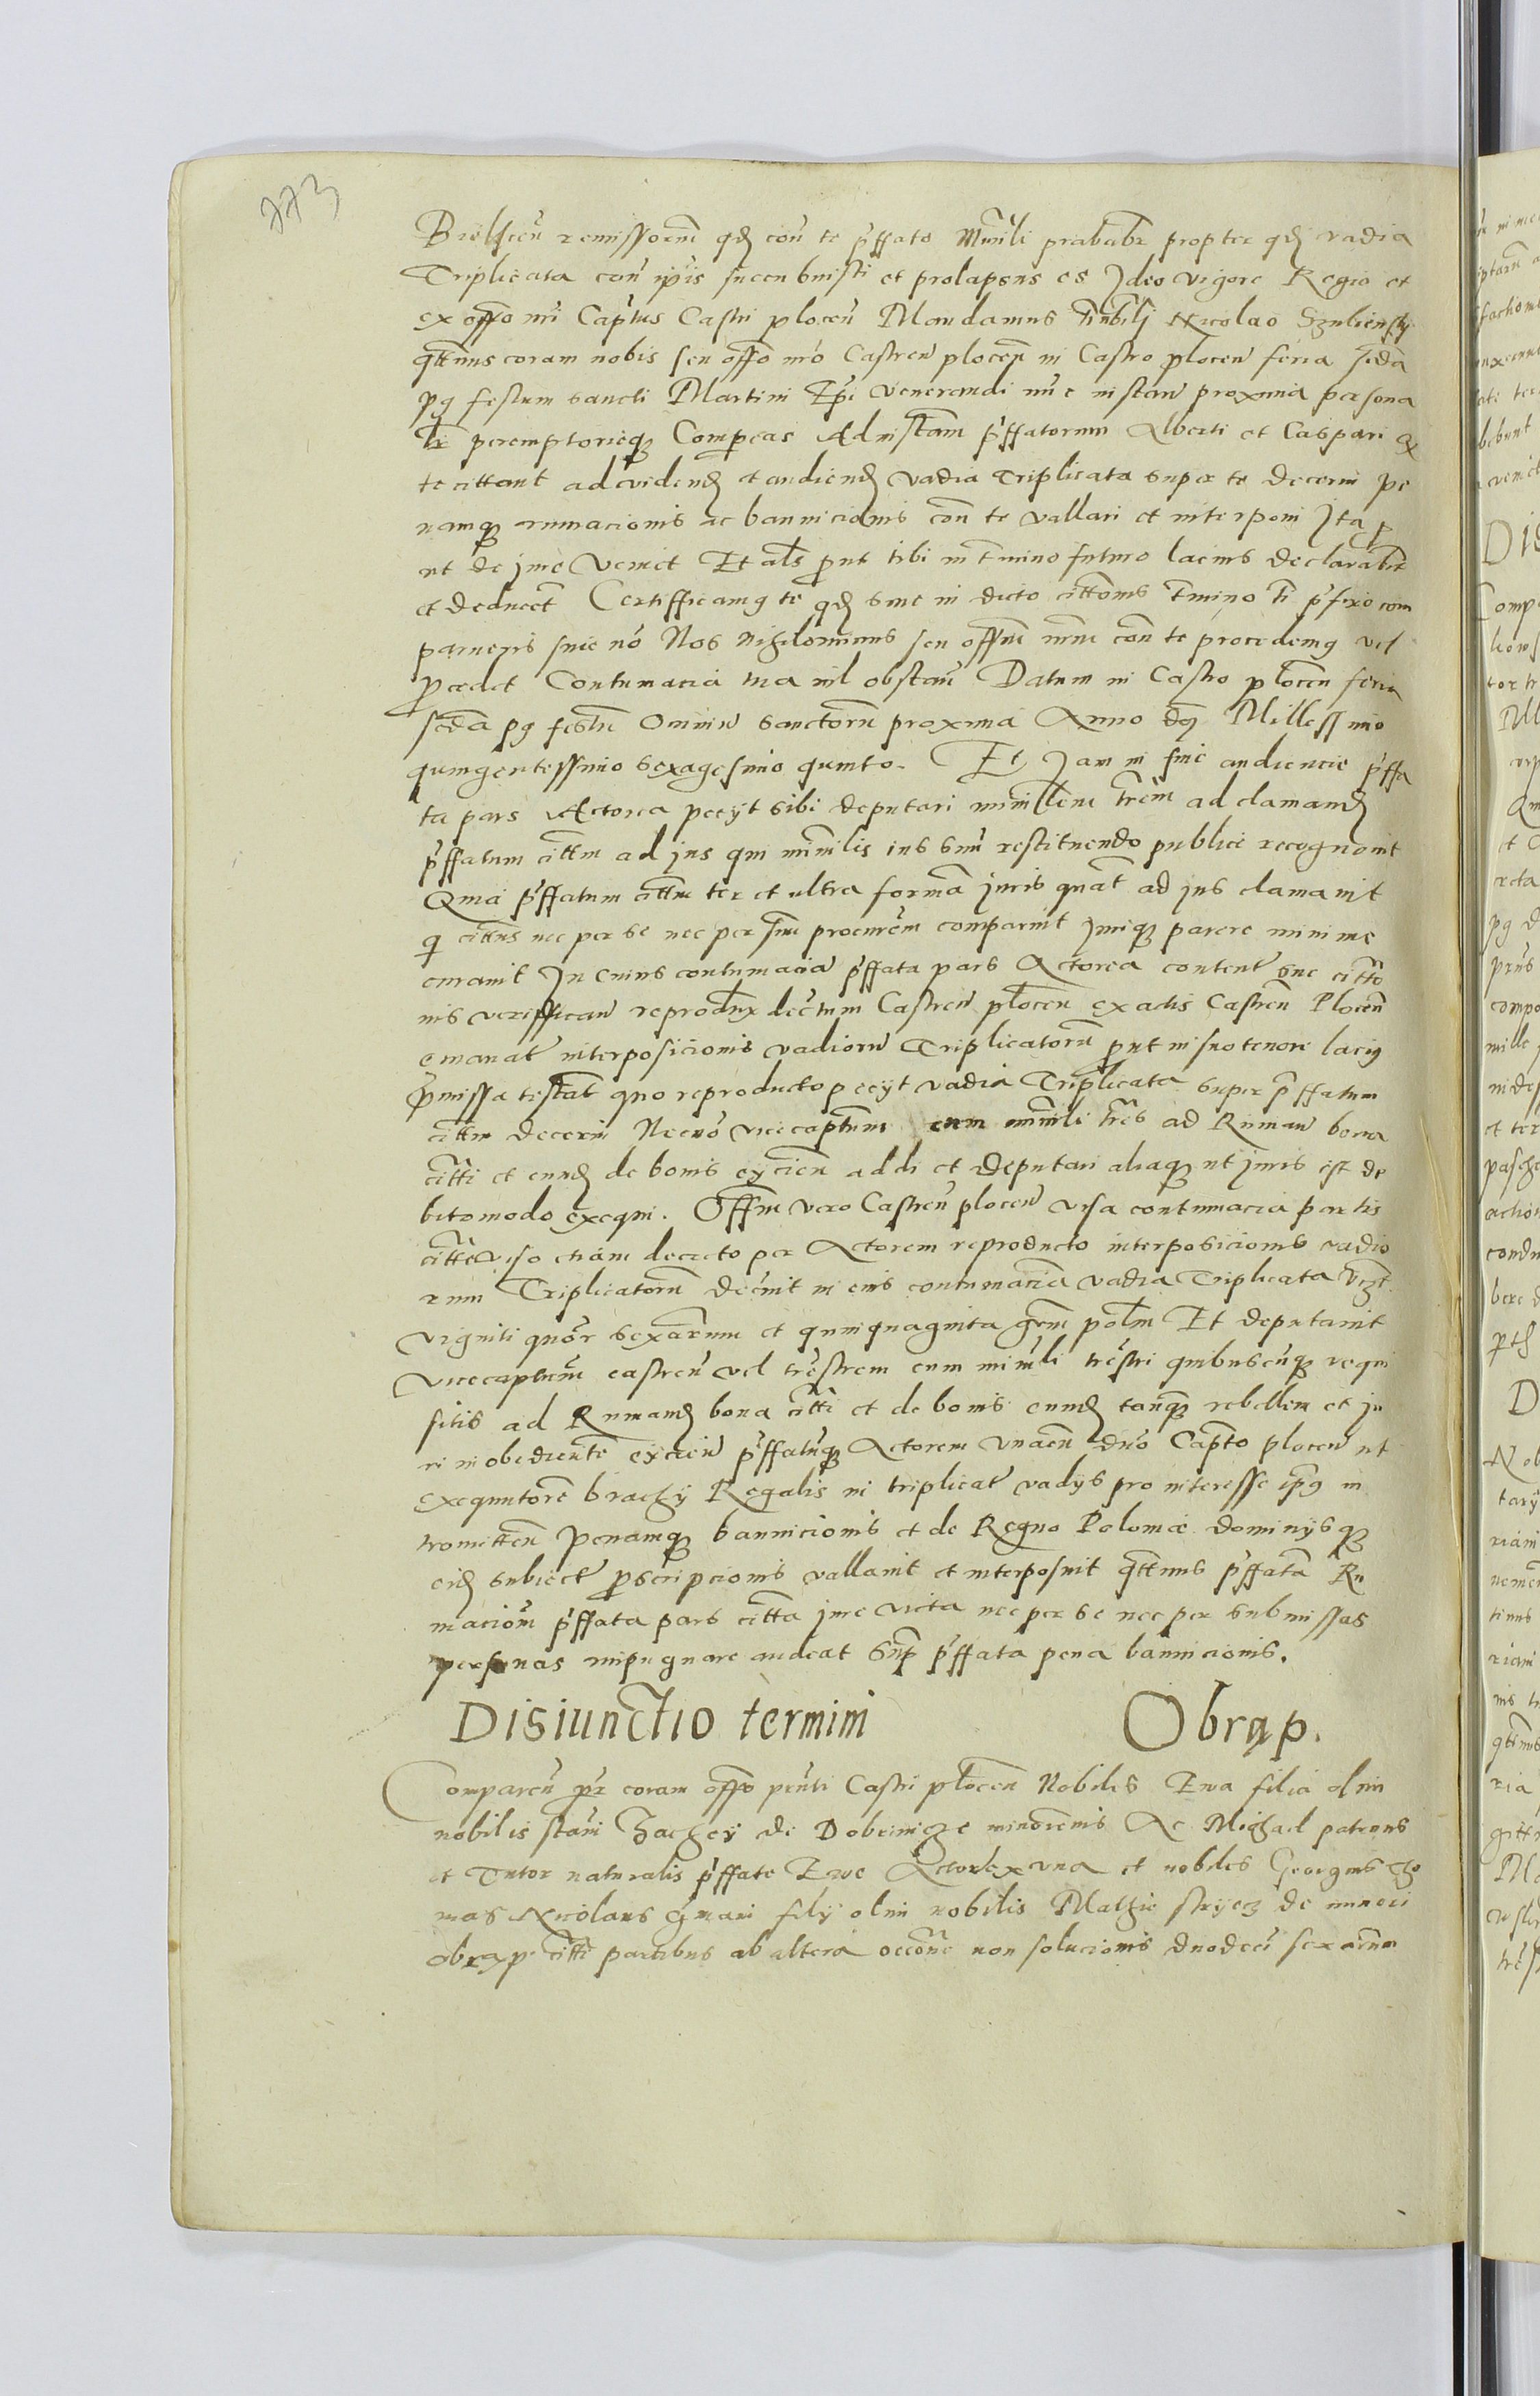 773
Bielscen remissorum qd con te pffato Minrli prababr propter qd vadia
Triplicata con ipius succubuisti et prolapsus es Ideo vigore Regio et
ex offo nri Captus Castri plocen Mandamus tibi nobili Nicolao Szulienskj
qttinus coram nobis seu offo nro Castren plocen in Castro plocen feria scda
pg festum sancti Martini Epi venerandi nunc instan proxima persona
lr peremptorieqz Compeas Ad instam pffatorum Alberti et Caspari q
te cittant ad vidend et audiend vadia Triplicata super te decerni pe
namqz rumacionis ac bannicionis con te vallari et interponi Ita p
ut de jure veniet Et als prout tibi in tmino futuro lacius declarabitr
et deducet Certifficamg te qd siue in dicto cittonis tmino ti pfixo com
parueris siue no Nos nihilominus seu offm nrm con te procedemg vel
procedet Contumacia tua nil obstan Datum in Castro plocen feria
scda pg festu Omniu sanctoru proxima Anno dni Millessimo
quingentessimo sexagesimo quinto. Et Jam in fine audiencie pffa
ta pars Actorea peeyt sibi deputari minrllem trem ad clamand
pffatum cittm ad jus qui minrlis ius suu restituendo publice recognouit
Quia pffatum cittm ter et ultra forma juris quat ad jus clamauit
q cittus nec per se nec per sm procurem comparuit jurique parere minime
curauit In cuius contumacia pffata pars Actorea content sue citto
nis veriffican reprodux dectum Castren plocen ex actis Castren Plocen
emanat interposicionis vadioru Triplicatoru prout in suo tenore lacig
pmissa testat quo reproducto peeyt vadia Triplicata super pffatum
cittm decerni Necno vicecaptum cum minrli tris ad Ruman bona
citti et eund de bonis eycien addi et deputari aliaqz ut juris est de
bito modo exequi. Offm vero Castren plocen visa contumacia partis
citte viso etiam decreto per Actorem reproducto interposicionis vadio
rum Triplicatoru decruit in eius contumacia vadia Triplicata vizt
viginti quor sexarum et quinquaginta grm polm Et deputauit
vicecaptum castren vel trestrem cum minrli trestri quibuscuqz requi
sitis ad Rumand bona citti et de bonis eund tanqz rebellem et ju
ri inobediente eycien pffatuqz Actorem unacu dno Capto plocen ut
exequutore brachy Regalis in triplicat vadys pro interesse ipg in
tromitten penamqz bannicionis et de Regno Polonie dominysqz
eid subiect proscripcionis vallauit et interposuit qttinus pffata Ru
macion pffata pars citta jure victa nec per se nec per submissas
personas impugnare audeat Sup pffata pena bannicionis.
Disiunctio termini Obrąp.
Comparen pr coram offo pnti Castri plocen Nobilis Ewa filia olim
nobilis stani Zachey de Dobrinicze minorenis Ac Michael patruus
et Tutor naturalis pffate Ewe Actores ex una et nobiles Georgius Tho
mas Nicolaus Gnani fily olim nobilis Mathie stryecz de minori
obrąp citti partibus ab altera occone non solucionis duodeci sexarum